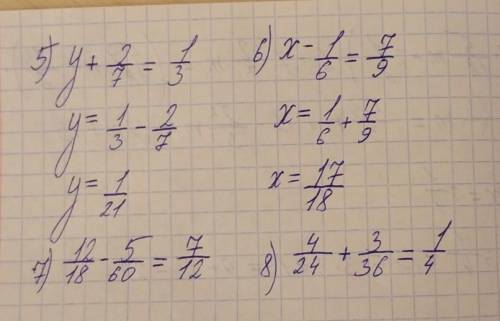 5) y + 2/7 = 1/3
y = 1/3 - 2/7
y = 1/21
6) x - 1/6 = 7/9
x = 1/6 + 7/9
x = 17/18
7) 12/18 - 5/60 = 7/12
8) 4/24 + 3/36 = 1/4